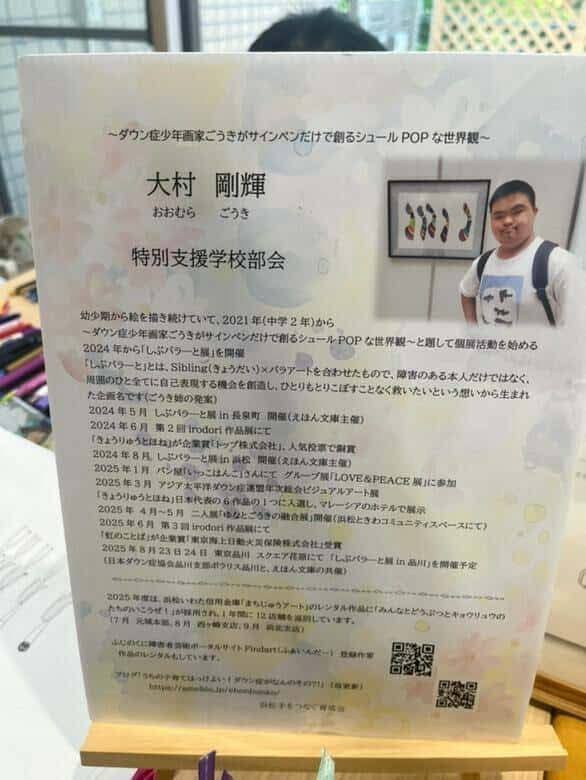 ～ダウン症少年画家ごうきがサインペンだけで創るシュールPOPな世界観～
大村　剛輝
おおむら　ごうき
特別支援学校部会
幼少期から絵を描き続けていて、2021年(中学2年)から
～ダウン症少年画家ごうきがサインペンだけで創るシュールPOPな世界観～と題して個展活動を始める
2024年から「しぶパラーと展」を開催
「しぶパラーと」とは、Sibling(きょうだい)×パラアートを合わせたもので、障害のある本人だけではなく、
周囲のひと全てに自己表現する機会を創造し、ひとりもとりこぼすことなく救いたいという想いから生まれ
た企画名です(ごうき姉の発案)
2024年5月　しぶパラーと展in長泉町　開催(えほん文庫主催)
2024年6月　第2回irodori作品展にて
「きょうりゅうとほね」が企業賞「トップ株式会社」、人気投票で銅賞
2024年8月　しぶパラーと展in浜松　開催(えほん文庫主催)
2025年1月　パン屋「いっこはんこ」さんにて　グループ展「LOVE&PEACE展」に参加
2025年3月　アジア太平洋ダウン症連盟年次総会ビジュアルアート展
「きょうりゅうとほね」日本代表の6作品の1つに入選し、マレーシアのホテルで展示
2025年　4月～5月　二人展「ゆなとごうきの融合展」開催(浜松ときわコミュニティスペースにて)
2025年6月　第3回irodori作品展にて
「虹のことば」が企業賞「東京海上日動火災保険株式会社」受賞
2025年8月23日24日　東京品川　スクエア荏原にて　「しぶパラーと展in品川」を開催予定
(日本ダウン症協会品川支部ポラリス品川と、えほん文庫の共催)
2025年度は、浜松いわた信用金庫「まちじゅうアート」のレンタル作品に「みんなとどうぶつとキョウリュウの
たちのいこうぜ!」が採用され、1年間に12店舗を巡回しています。
(7月　元城本部、8月　西ヶ崎支店、9月　浜北支店)
ふじのくに障害者芸術ポータルサイトFindart(ふぁいんだー)　登録作家
作品のレンタルもしています。
ブログ「うちの子育てはっけよい!ダウン症がなんのその?!」(毎更新)
https://ameblo.jp/ehonbunko/
浜松手をつなぐ育成会